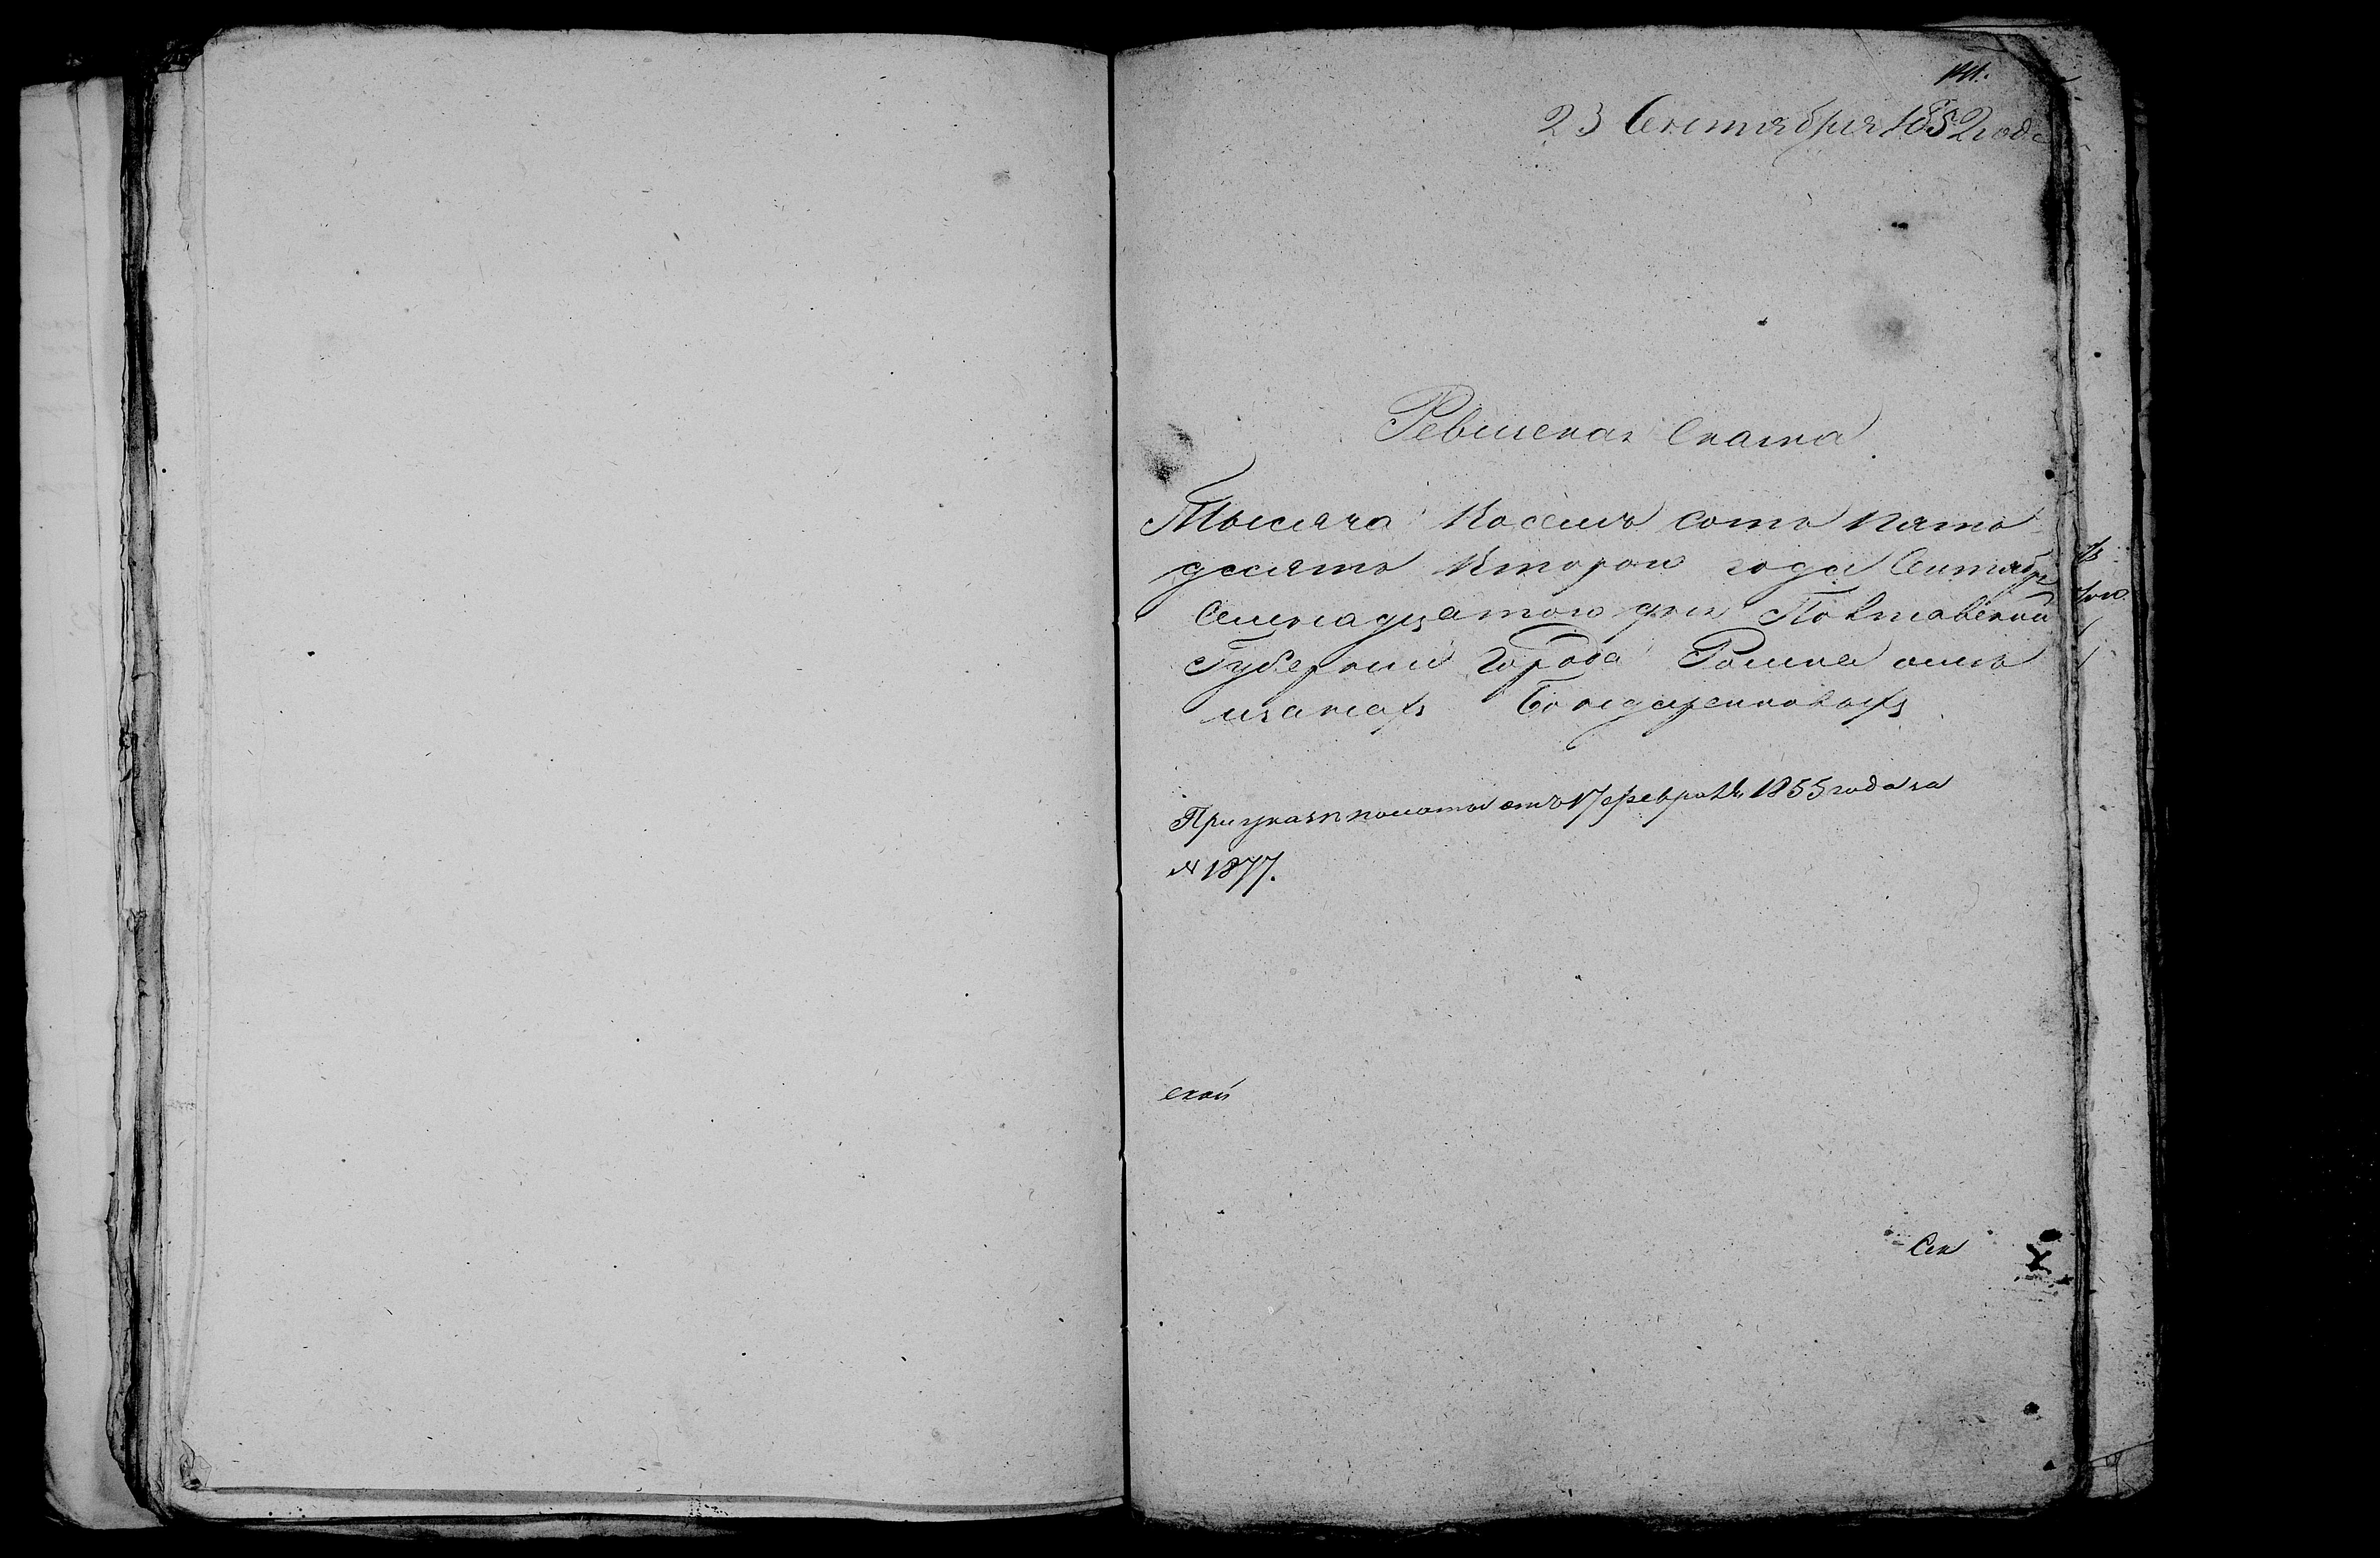 141.
23 Сентября 1852 года
Ревизская Сказка
Тысяча Восемь сотъ пять
десять Второго года Сентября
Семнадцатого дня Полтавской
Губернии Города Ромна о
мѣщанах Бондаренковых
При указѣ палаты отъ 17 февраля 1855 года за
№ 1877.
ской
Сек